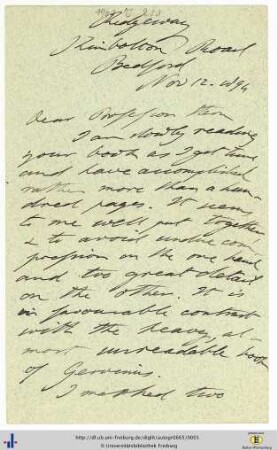 Ridgeway
Kimbolton Road
Bedford
Nov 12. 1894
Dear Professor
I am slowly reading
your book as I get time
and have accomplished
rather more than a hun-
dred pages. It seems
to me well put together
& to avoid undue com
pression on the one hand
and too great detail
on the other. It is
in favourable contrast
with the heavy, al-
most unreadable book
of Gervinus.
I marked two
http://dl.ub.uni-freiburg.de/diglit/autogr0665/0005
© Universitätsbibliothek Freiburg